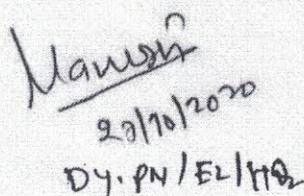 Manish
2૭/10/2020
DY. PN/EL/HQ